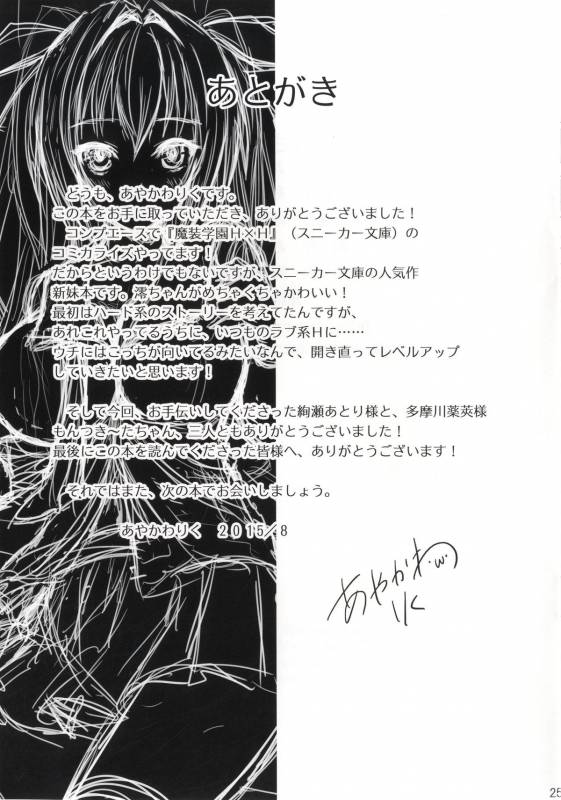 あとがき
どうも、あやかわりくです。
この本をお手に取っていただき、ありがとうございました！
コンプエースで『魔装学園Ｈ×Ｈ』（スニーカー文庫）の
コミカライズやってます！
だからというわけでもないですが、スニーカー文庫の人気作
新妹本です。澪ちゃんがめちゃくちゃかわいい！
最初はハード系のストーリーを考えてたんですが、
あれこれやってるうちに、いつものラブ系Ｈに……
ウチにはこっちが向いてるみたいなんで、開き直ってレベルアップ
していきたいと思います！
そして今回、お手伝いしてくださった絢瀬あとり様と、多摩川薬莢様
もんつき～たちゃん、三人ともありがとうございました！
最後にこの本を読んでくださった皆様へ、ありがとうございます！
それではまた、次の本でお会いしましょう。
あやかわりく　２０１５／８
あやかわりく
25